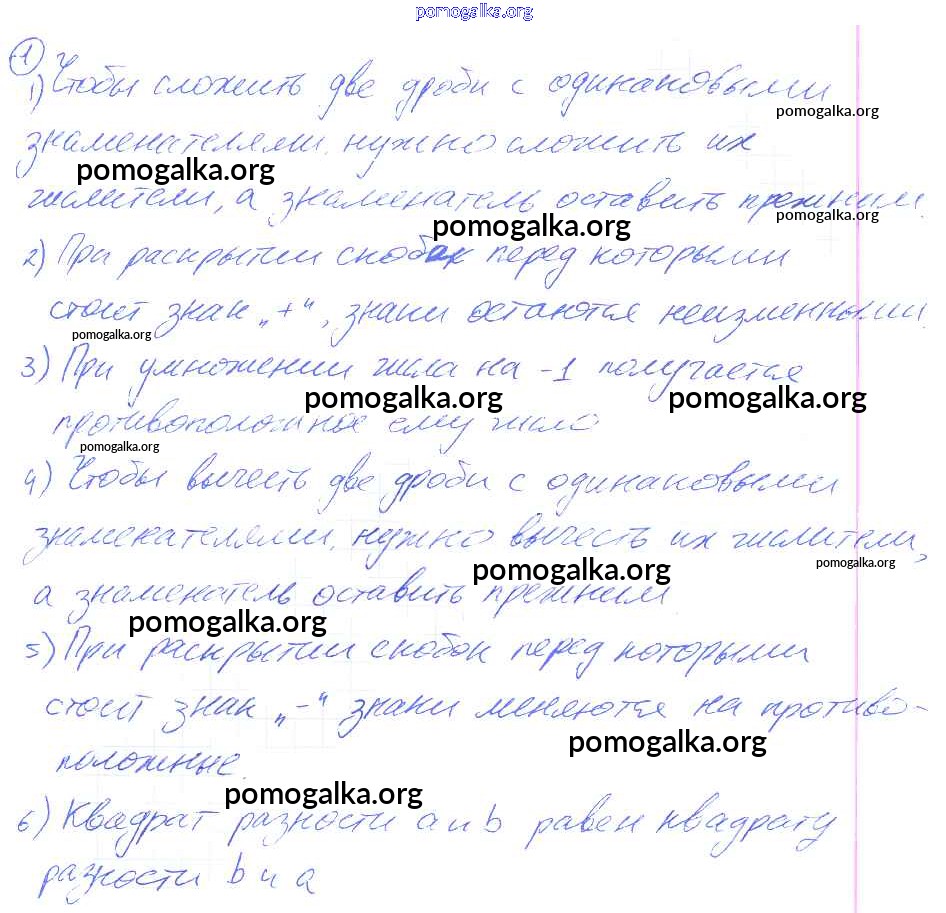 pomogalka.org
1
1) Чтобы сложить две дроби с одинаковыми
pomogalka.org
знаменателями, нужно сложить их
pomogalka.org
числители, а знаменатель оставить прежним.
pomogalka.org
pomogalka.org
2) При раскрытии скобок перед которыми
стоит знак „+“, знаки остаются неизменными.
pomogalka.org
3) При умножении числа на -1 получается
pomogalka.org pomogalka.org
противоположное ему число
pomogalka.org
4) Чтобы вычесть две дроби с одинаковыми
знаменателями, нужно вычесть их числители,
pomogalka.org
pomogalka.org
а знаменатель оставить прежним
pomogalka.org
5) При раскрытии скобок перед которыми
стоит знак „-“ знаки меняются на противо-
pomogalka.org
положные.
pomogalka.org
6) Квадрат разности a и b равен квадрату
разности b и a